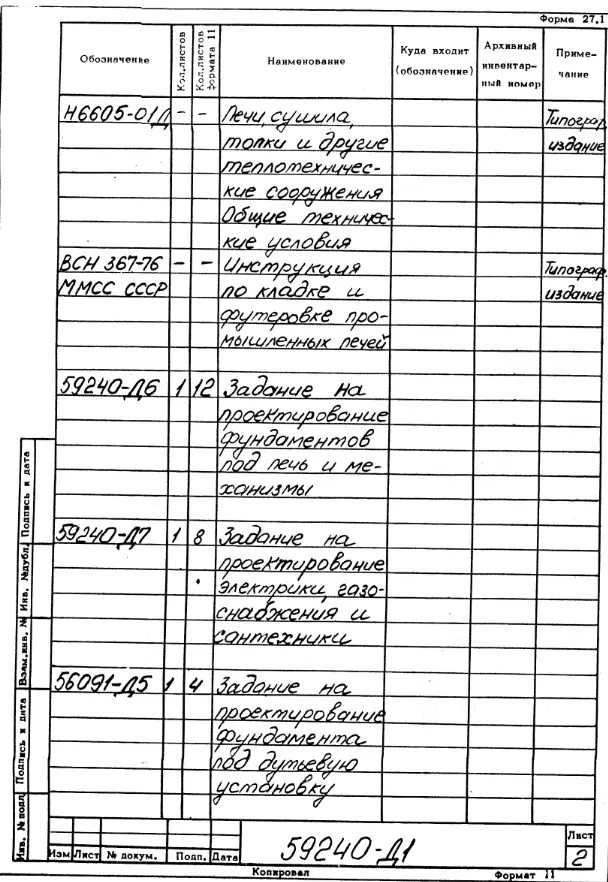 Форма 27.1
Обозначение Кол.листов Кол.листов формата 11 Наименование Куда входит (обозначение) Архивный инвентарный номер Примечание
Н6605-01Д - - Печи, сушила, Типограф.
топки и другие издание
теплотехничес-
кие сооружения
Общие техничес-
кие условия
ВСН 367-76 - - Инструкция Типограф.
ММСС СССР по кладке и издание
футеровке про-
мышленных печей
59240-Д6 1 12 Задание на
проектирование
фундаментов
под печь и ме-
ханизмы
59240-Д7 1 8 Задание на
проектирование
электрики, газо-
снабжения и
сантехники
56091-Д5 1 4 Задание на
проектирование
фундамента
под дутьевую
установку
Инв. № подл. Подпись и дата Взам.инв. № Инв. № дубл. Подпись и дата
Изм Лист № докум. Подп. Дата
59240-Д1
Лист
2
Копировал Формат 11